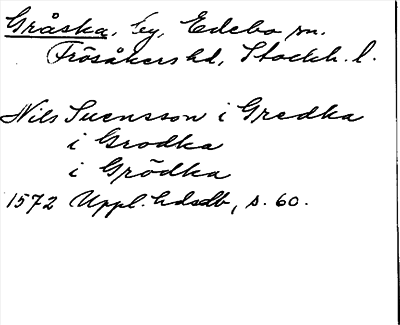 Gråska, by, Edebo sn.
Frösåkers hd, Stockh. l.
Nils Suensson i Gredka
i Grodka
i Grödka
1572 Uppl. hdsdb, s. 60.